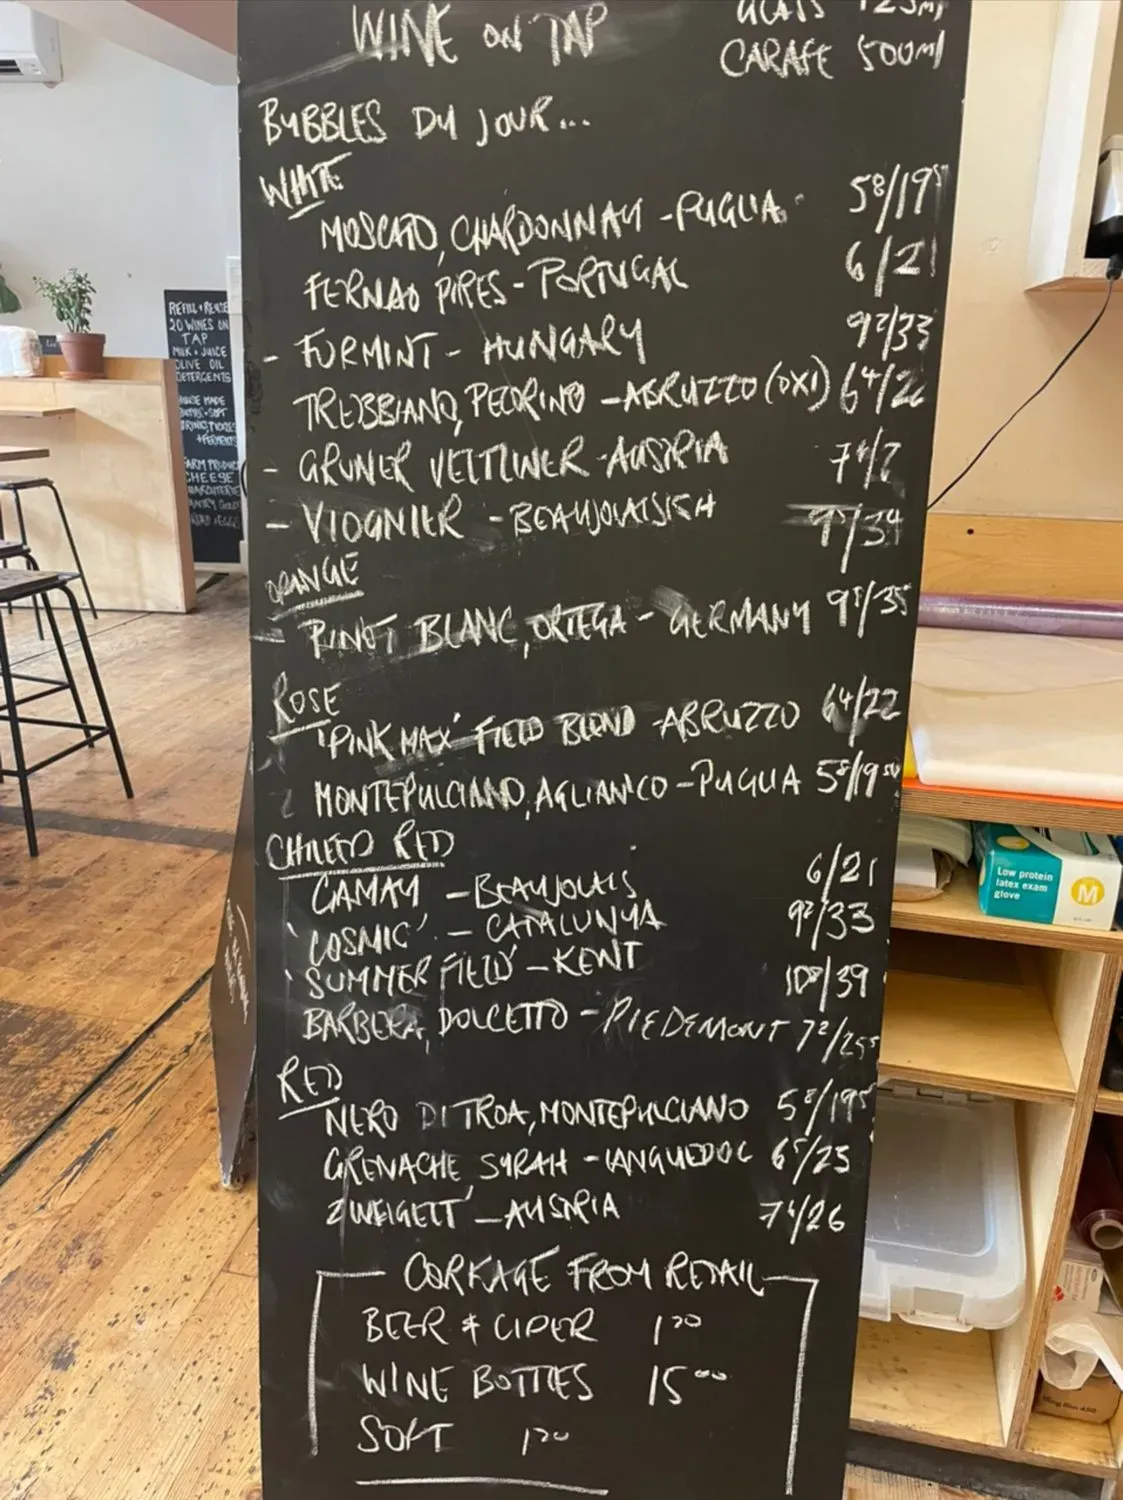 WINE ON TAP
GLASS 125ml
CARAFE 500ml
BUBBLES DU JOUR...
WHITE
MOSCATO, CHARDONNAY - PUGLIA 5⁸/19⁵⁰
FERNAO PIRES - PORTUGAL 6/21
- FURMINT - HUNGARY 9²/33
TREBBIANO, PECORINO - ABRUZZO (OXI) 6⁴/22
- GRUNER VELTLINER - AUSTRIA
- VIOGNIER - BEAUJOLAISISH /34
ORANGE
- PINOT BLANC, ORTEGA - GERMANY 9⁸/35
ROSE
'PINK MAX' FIELD BLEND - ABRUZZO 6⁴/22
MONTEPULCIANO, AGLIANICO - PUGLIA 5⁸/19⁵⁰
CHILLED RED
GAMAY - BEAUJOLAIS 6/21
'COSMIC' - CATALUNYA 9²/33
'SUMMER FIELD' - KENT 10⁸/39
BARBERA, DOLCETTO - PIEDEMONT 7²/25⁵
RED
NERO DI TROA, MONTEPULCIANO 5⁸/19⁵
GRENACHE, SYRAH - LANGUEDOC 6⁵/23
ZWEIGELT - AUSTRIA 7⁴/26
CORKAGE FROM RETAIL
BEER & CIDER 1²⁰
WINE BOTTLES 15⁰⁰
SOFT 1²⁰
REFILL + REUSE
20 WINES ON
TAP
MILK + JUICE
OLIVE OIL
DETERGENTS
HOUSE MADE
+ FERMENTS
FARM PRODUCE
CHEESE
CHARCUTERIE
BREAD + EGGS
Low protein
latex exam
glove
M